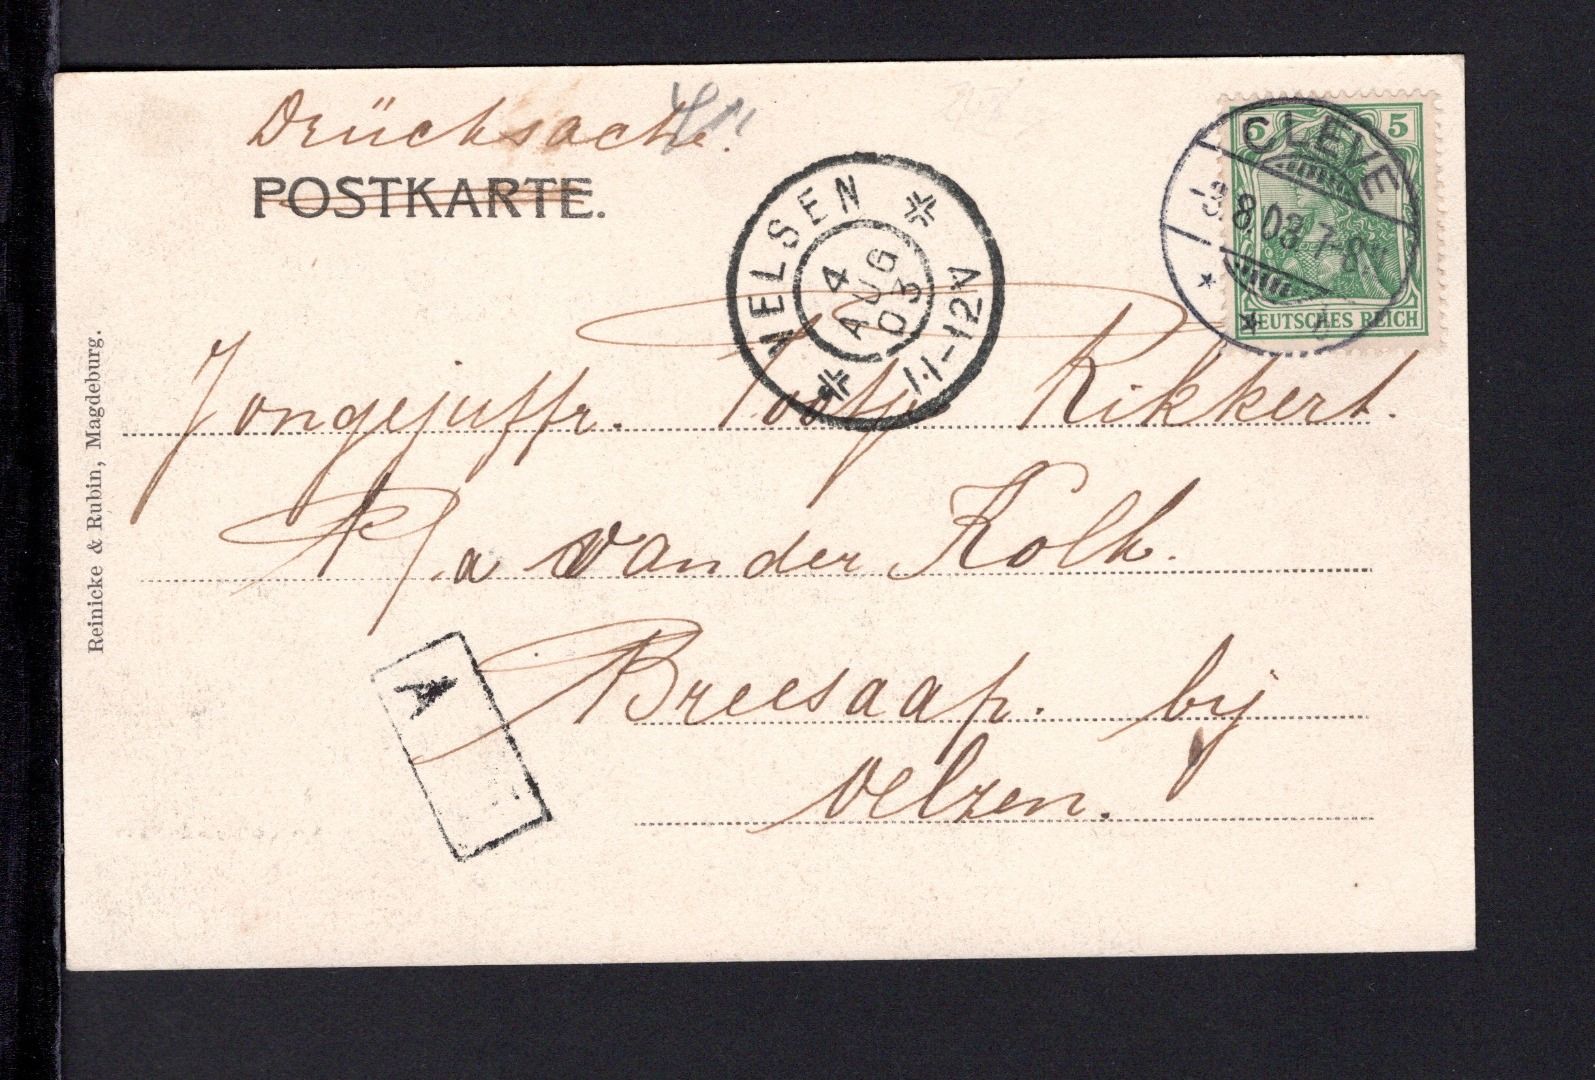 Drücksache.
POSTKARTE.
5 5
DEUTSCHES REICH
CLEVE
3.8.03.7-8N.
VELSEN
4
AUG
03
11-12V
Jongejuffr. Rikkert.
P/a van der Kolk.
Breesaap. bij
Velzen.
A
Reinicke & Rubin, Magdeburg.